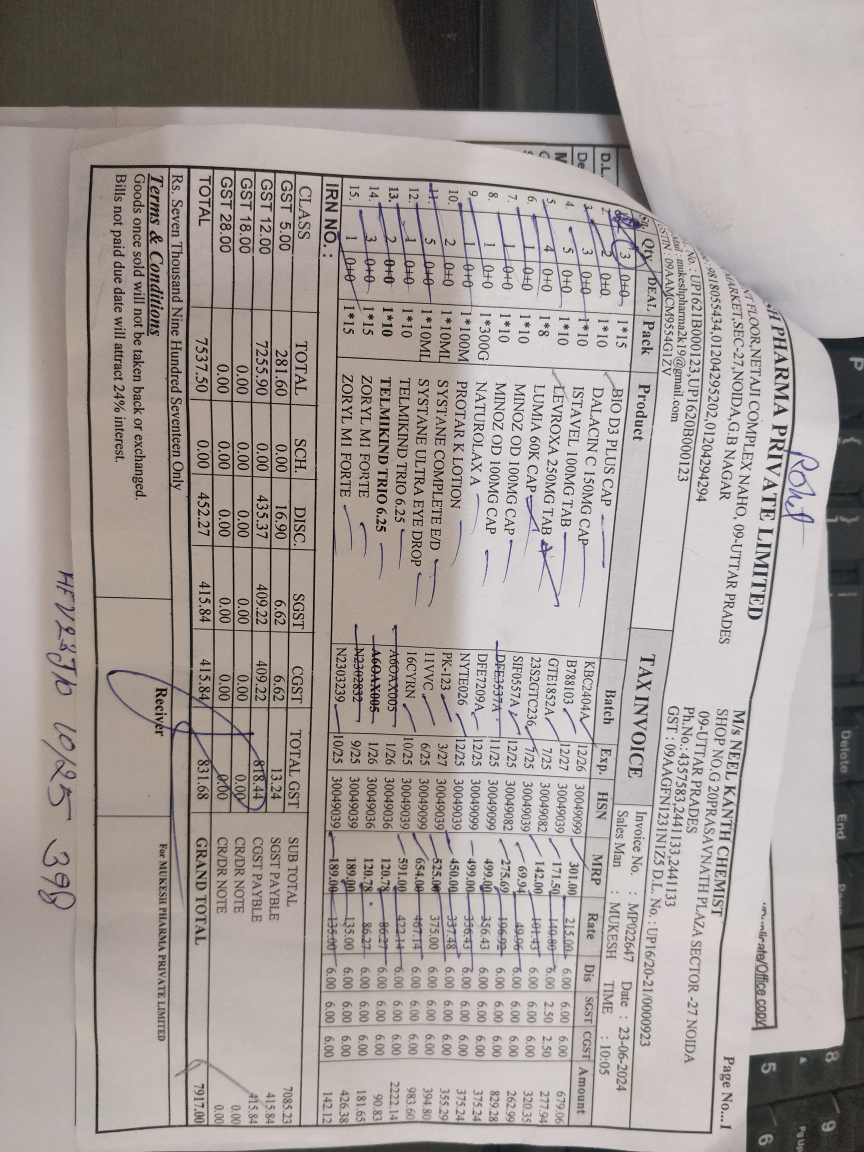 Rohit
SH PHARMA PRIVATE LIMITED
NT FLOOR,NETAJI COMPLEX NAHO, 09-UTTAR PRADES
MARKET,SEC-27,NOIDA,G.B NAGAR
9818055434,01204295202,01204294294
No. : UP1621B000123,UP1620B000123
mail : mukeshpharma2k19@gmail.com
GSTIN : 09AAMCM9554G1ZV
Duplicate/Office copy
Page No...1
M/s NEEL KANTH CHEMIST
SHOP NO.G 20PRASAVNATH PLAZA SECTOR -27 NOIDA
09-UTTAR PRADES
Ph.No.:4357583,2441133,2441133
GST : 09AAGFN1231N1Z5 D.L. No. : UP16/20-21/0000923
TAX INVOICE
Invoice No. : MP022647 Date : 23-06-2024
Sales Man : MUKESH TIME : 10:05
Sn. Qty DEAL Pack Product Batch Exp. HSN MRP Rate Dis SGST CGST Amount
3 0+0 1*15 BIO D3 PLUS CAP KBC2404A 12/26 30049099 301.00 215.00 6.00 6.00 6.00 679.06
2. 2 0+0 1*10 DALACIN C 150MG CAP B788103 12/27 30049039 171.50 140.80 6.00 2.50 2.50 277.94
3. 3 0+0 1*10 ISTAVEL 100MG TAB GTE1852A 7/25 30049082 142.00 101.43 6.00 6.00 6.00 320.35
4. 5 0+0 1*10 LEVROXA 250MG TAB 23S2GTC236 7/25 69.94 49.96 6.00 6.00 6.00 262.99
5. 4 0+0 1*8 LUMIA 60K CAP SIF0557A 12/25 30049082 275.69 196.92 6.00 6.00 6.00 829.28
6. 1 0+0 1*10 MINOZ OD 100MG CAP DFE3537A 11/25 30049099 499.00 356.43 6.00 6.00 6.00 375.24
7. 1 0+0 1*10 MINOZ OD 100MG CAP DFE7209A 12/25 30049099 499.00 356.43 6.00 6.00 6.00 375.24
8. 1 0+0 1*300G NATUROLAX A NYTE026 12/25 30049039 450.00 337.48 6.00 6.00 6.00 355.29
9. 1 0+0 1*100M PROTAR K LOTION PK-123 3/27 30049039 525.00 375.00 6.00 6.00 6.00 394.80
10. 2 0+0 1*10ML SYSTANE COMPLETE E/D 11VVC 6/25 30049099 654.00 467.14 6.00 6.00 6.00 983.60
11. 5 0+0 1*10ML SYSTANE ULTRA EYE DROP 16CYRN 10/25 30049039 591.00 422.14 6.00 6.00 6.00 2222.14
12. 1 0+0 1*10 TELMIKIND TRIO 6.25 A6OAX005 1/26 30049036 120.78 86.27 6.00 6.00 6.00 90.83
13. 2 0+0 1*10 TELMIKIND TRIO 6.25 A6OAX005 1/26 30049036 120.78 86.27 6.00 6.00 6.00 181.65
14. 3 0+0 1*15 ZORYL M1 FORTE N2302832 9/25 30049039 189.00 135.00 6.00 6.00 6.00 426.38
15. 1 0+0 1*15 ZORYL M1 FORTE N2303239 10/25 30049039 189.00 135.00 6.00 6.00 6.00 142.12
IRN NO. :
CLASS TOTAL SCH. DISC. SGST CGST TOTAL GST SUB TOTAL 7085.23
GST 5.00 281.60 0.00 16.90 6.62 6.62 13.24 SGST PAYBLE 415.84
GST 12.00 7255.90 0.00 435.37 409.22 409.22 818.44 CGST PAYBLE 415.84
GST 18.00 0.00 0.00 0.00 0.00 0.00 0.00 CR/DR NOTE 0.00
GST 28.00 0.00 0.00 0.00 0.00 0.00 0.00 CR/DR NOTE 0.00
TOTAL 7537.50 0.00 452.27 415.84 415.84 831.68 GRAND TOTAL 7917.00
Rs. Seven Thousand Nine Hundred Seventeen Only
Terms & Conditions
Goods once sold will not be taken back or exchanged.
Bills not paid due date will attract 24% interest.
Reciver
For MUKESH PHARMA PRIVATE LIMITED